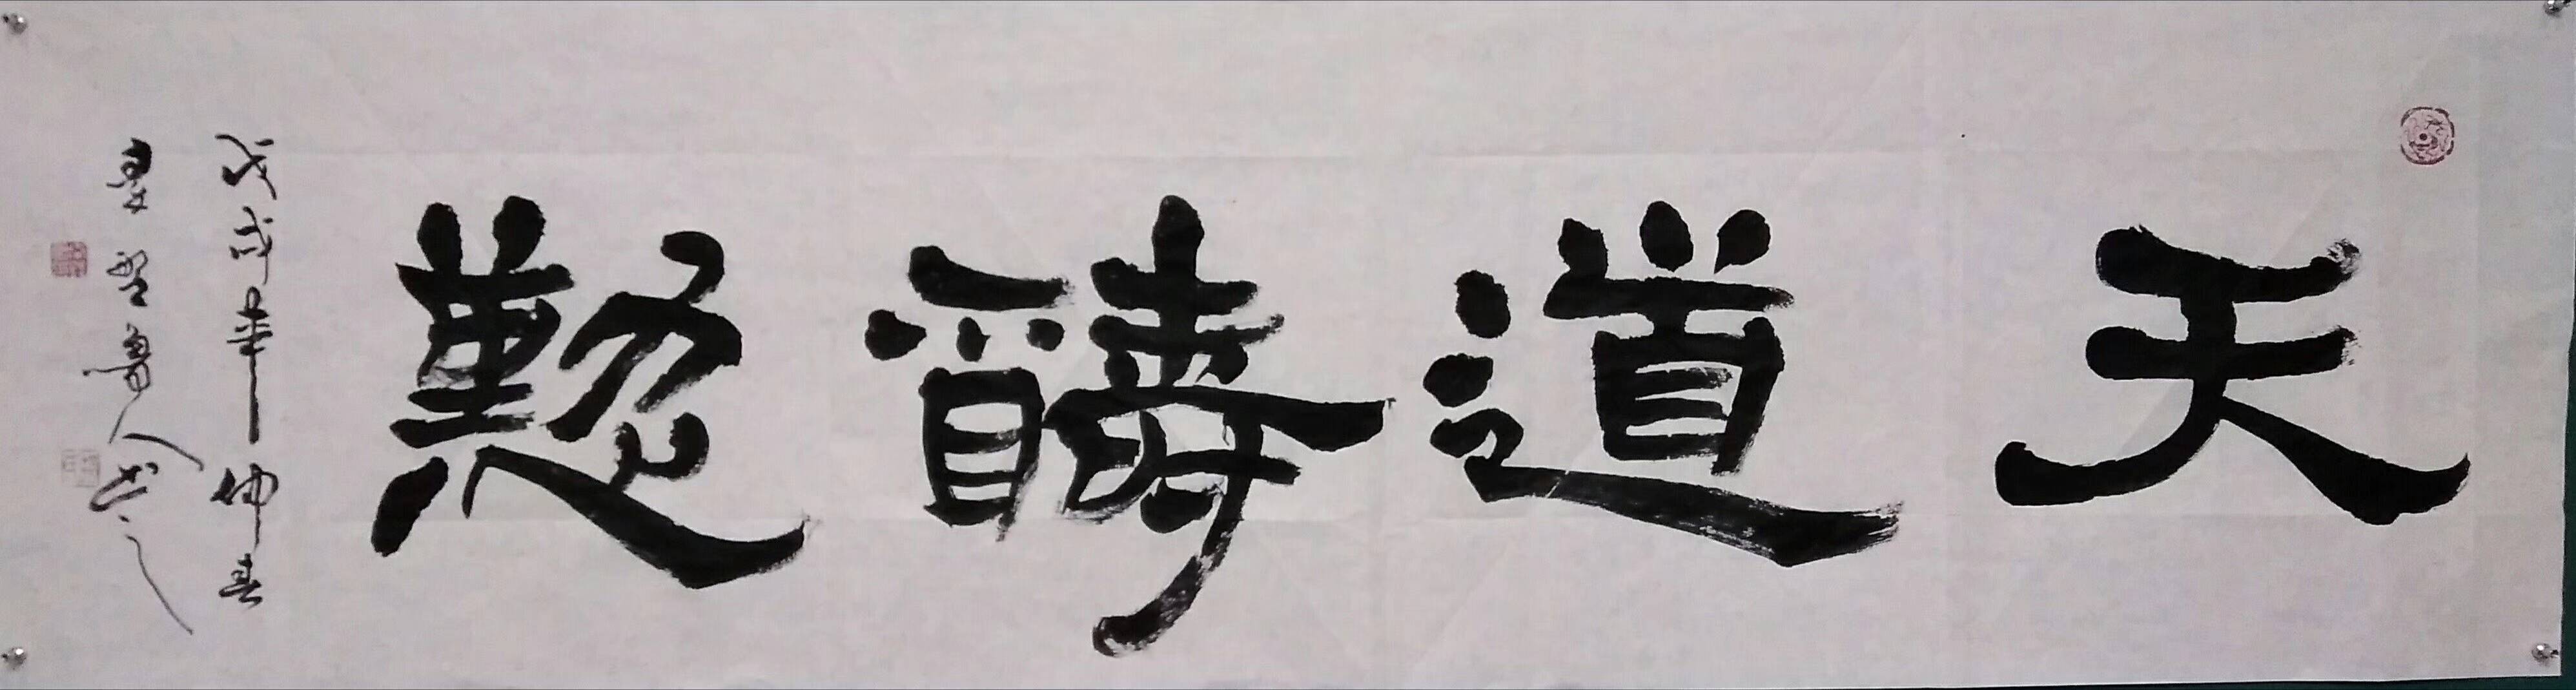 天道酬勤
戊戌年仲春
鲁人书之